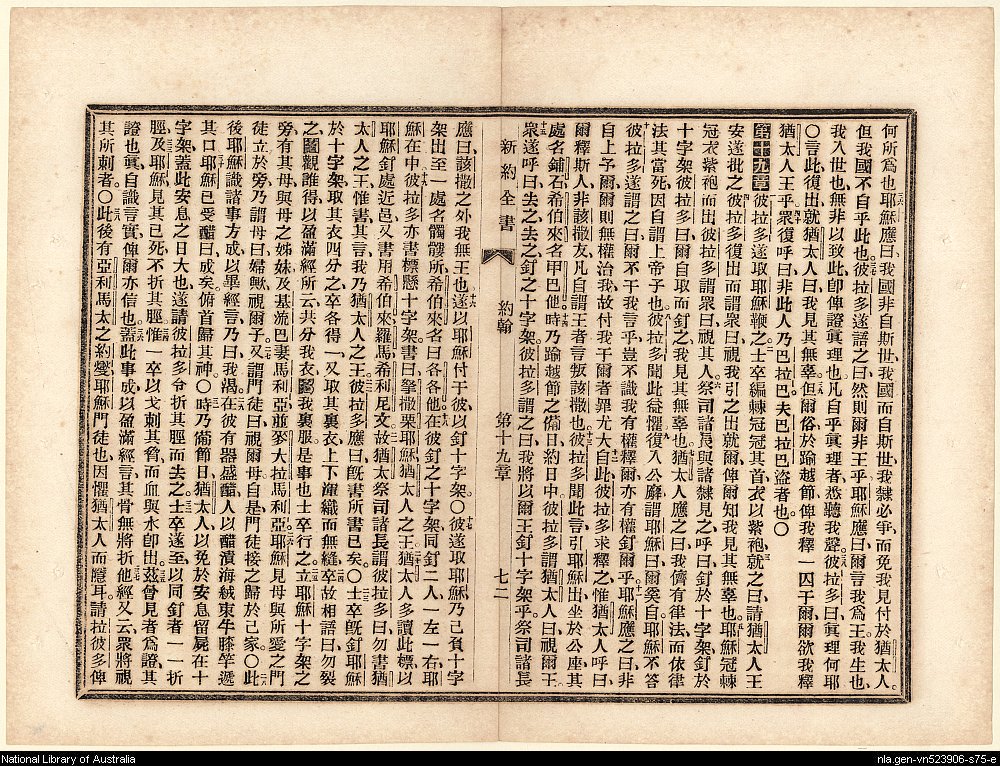 何所爲也耶穌應曰我國非自斯世我國而自斯世我隸必爭而免我見付於猶太人。
但我國不自乎此也彼拉多遂語之曰然則爾非王乎耶穌應曰爾言我爲王我生也
我入世也無非以致此卽俾證眞理也凡自乎眞理者悉聽我聲彼拉多曰眞理何耶
〇言此復出就猶太人曰我見其無辜但爾俗於踰越節俾我釋一囚于爾爾欲我釋
猶太人王乎衆復呼曰非此人乃巴拉巴夫巴拉巴盜者也〇
第十九章 彼拉多遂取耶穌鞭之士卒編棘冠冠其首衣以紫袍就之曰請猶太人王
安遂批之彼拉多復出而謂衆曰視我引之出就爾俾爾知我見其無辜也耶穌冠棘
冠衣紫袍而出彼拉多謂衆曰視其人祭司諸長與諸隸見之呼曰釘於十字架釘於
十字架彼拉多曰爾自取而釘之我見其無辜也猶太人應之曰我儕有律法而依律
法其富死因自謂上帝子也彼拉多聞此益懼復入公廨謂耶穌曰爾奚自耶穌不答
彼拉多遂謂之曰爾不干我言乎豈不識我有權釋爾亦有權釘爾乎耶穌應之曰非
自上予爾爾則無權治我故付我于爾者罪尤大自此彼拉多求釋之惟猶太人呼曰
爾釋斯人非該撒友凡自謂王者言叛該撒也彼拉多聞此言引耶穌出坐於公座其
處名鋪石希伯來名甲巴他時乃踰越節之備日約日中彼拉多謂猶太人曰視爾王
衆遂呼曰去之去之釘之十字架彼拉多謂之曰我將以爾王釘十字架乎祭司諸長
新約全書 約翰 第十九章 七二
應曰該撒之外我無王也遂以耶穌付于彼以釘十字架〇彼遂取耶穌乃己負十字
架出至一處名髑髏所希伯來名曰各各他在彼釘之十字架同釘二人一左一右耶
穌在中彼拉多亦書標懸十字架書曰拏撒栗耶穌猶太人之王猶太人多讀此標以
耶穌釘處近邑又書用希伯來羅馬希利尼文故猶太祭司諸長謂彼拉多曰勿書猶
太人之王惟書其言我乃猶太人之王彼拉多應曰旣書所書已矣〇士卒旣釘耶穌
於十字架取其衣四分之卒各得一又取其裏衣上下織而無縫卒故相語曰勿裂
之鬮觀誰得以盈滿經所云共分我衣鬮我裏服是事也士卒行之立耶穌十字架之
旁有其母與母之姊妹及基流巴妻馬利亞並麥大拉馬利亞耶穌見母與所愛之門
徒立於旁乃謂母曰婦歟視爾子又謂門徒曰視爾母自是門徒接之歸於己家〇此
後耶穌識諸事方成以畢經言乃曰我渴在彼有器盛醋人以醋漬海絨束牛膝竿遞
其口耶穌已受醋曰成矣俯首歸其神〇時乃備節日猶太人以免於安息留屍在十
字架蓋此安息之日大也遂請彼拉多令折其脛而去之士卒遂至以同釘者一一折
脛及耶穌見其已死不折其脛惟一卒以戈刺其脅而血與水卽出茲嘗見者爲證其
證也眞自識言實俾爾亦信也蓋此事成以盈滿經言其骨無將折他經又云衆將視
其所刺者〇此後有亞利馬太之約瑟耶穌門徒也因懼猶太人而隱耳請拉彼多俾
National Library of Australia
nla.gen-vn523906-s75-e